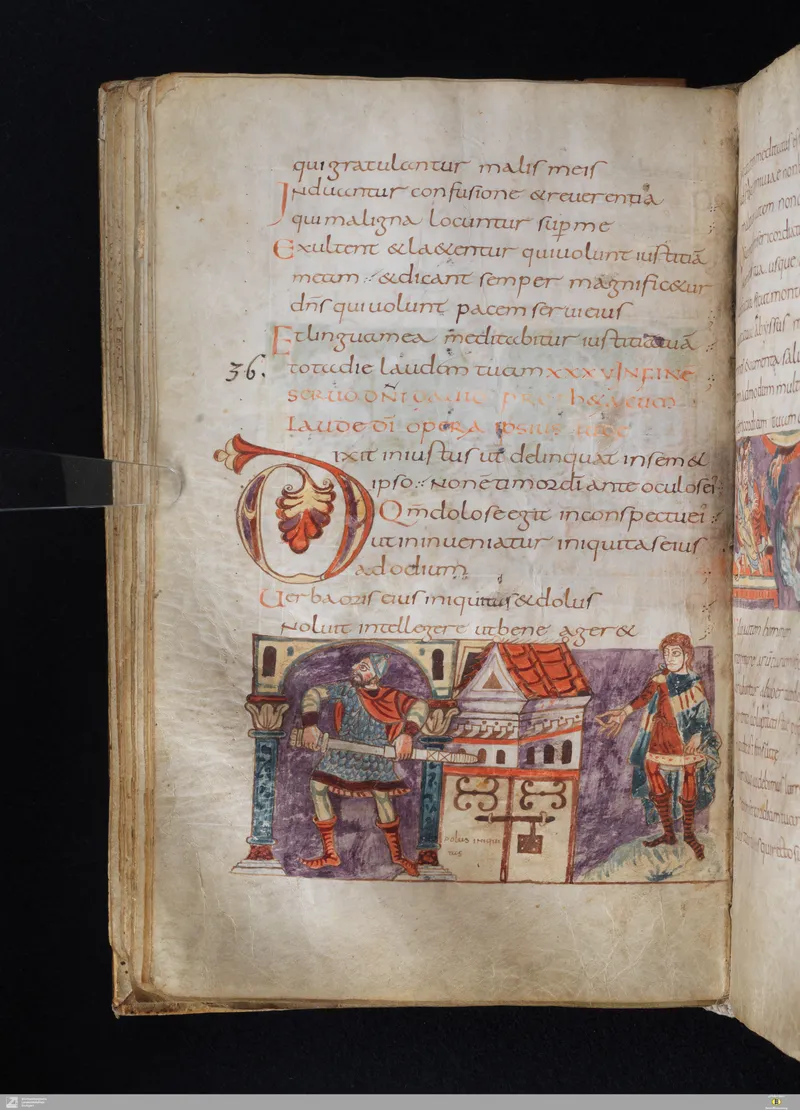 qui gratulantur malis meis
Induantur confusione & reverentia
qui maligna locuntur sup me
Exultent & laetentur qui uolunt iustitiā
meam & dicant semper magnific&ur
dn̄s qui uolunt pacem serui eius
Et lingua mea meditabitur iustitiam tuā
36. tota die laudem tuam XXXV IN FINE
SERVO DN̄I
LAUDE DI OPERA IPSIUS
Dixit iniustus ut delinquat in sem&
ipso Non ē timor dī ante oculos ei
Qm dolose egit in conspectu ei
ut inueniatur iniquitas eius
ad odium
Uerba oris eius iniquitas & dolus
Noluit intellegere ut bene ager&